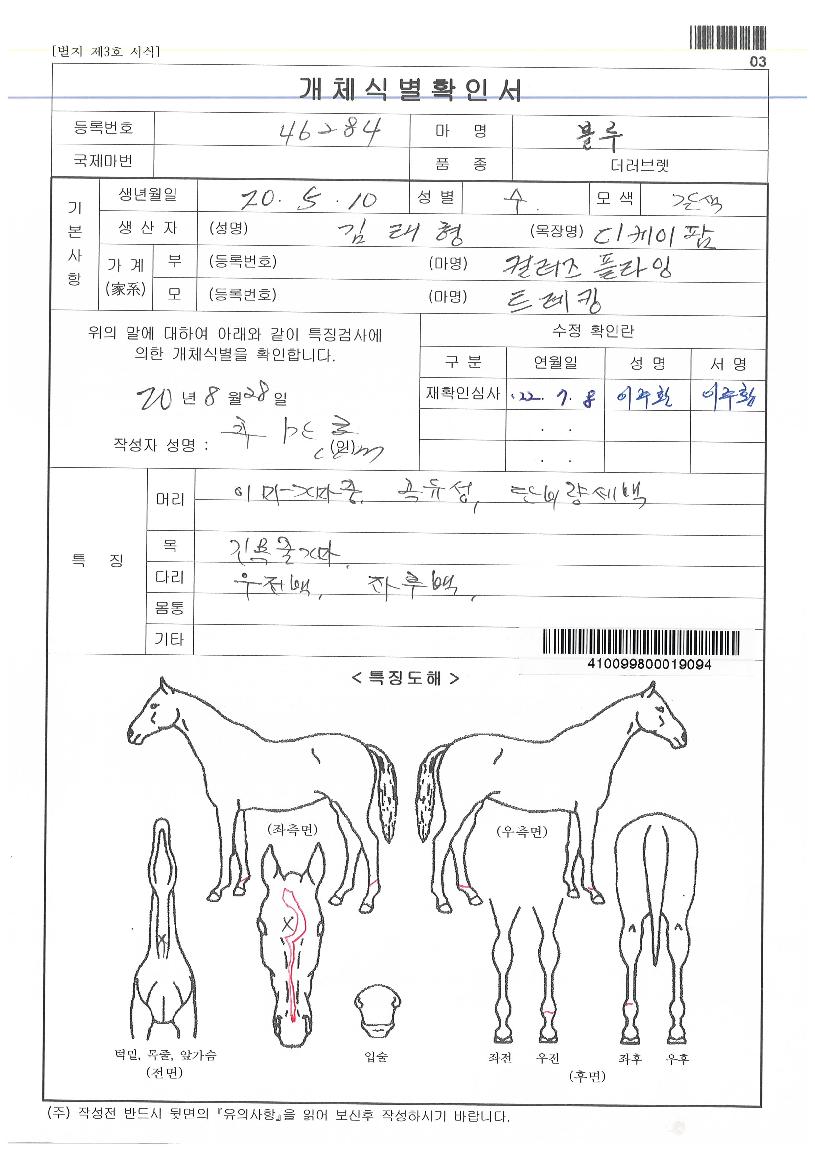 [별지 제3호 서식]
03
개체식별확인서
등록번호 46284 마 명 블루
국제마번 품 종 더러브렛
기본사항
생년월일 20. 5. 10 성별 수. 모색 갈색
생산자 (성명) 김태형 (목장명) 디케이팜
가계 (家系) 부 (등록번호) (마명) 컬러즈플라잉
모 (등록번호) (마명) 트레킹
위의 말에 대하여 아래와 같이 특징검사에
의한 개체식별을 확인합니다.
20년 8월 28일
작성자 성명 : (인)
수정 확인란
구분 연월일 성명 서명
재확인심사 '22. 7. 8 이주환 이주환
. .
. .
특 징
머리 이마가마중, 곡유성, 단비량세백
목 긴목줄가마.
다리 우전백, 좌후백,
몸통
기타
410099800019094
< 특징도해 >
(좌측면) (우측면)
턱밑, 목줄, 앞가슴
(전면)
입술
좌전 우전 좌후 우후
(후면)
(주) 작성전 반드시 뒷면의 『유의사항』을 읽어 보신후 작성하시기 바랍니다.